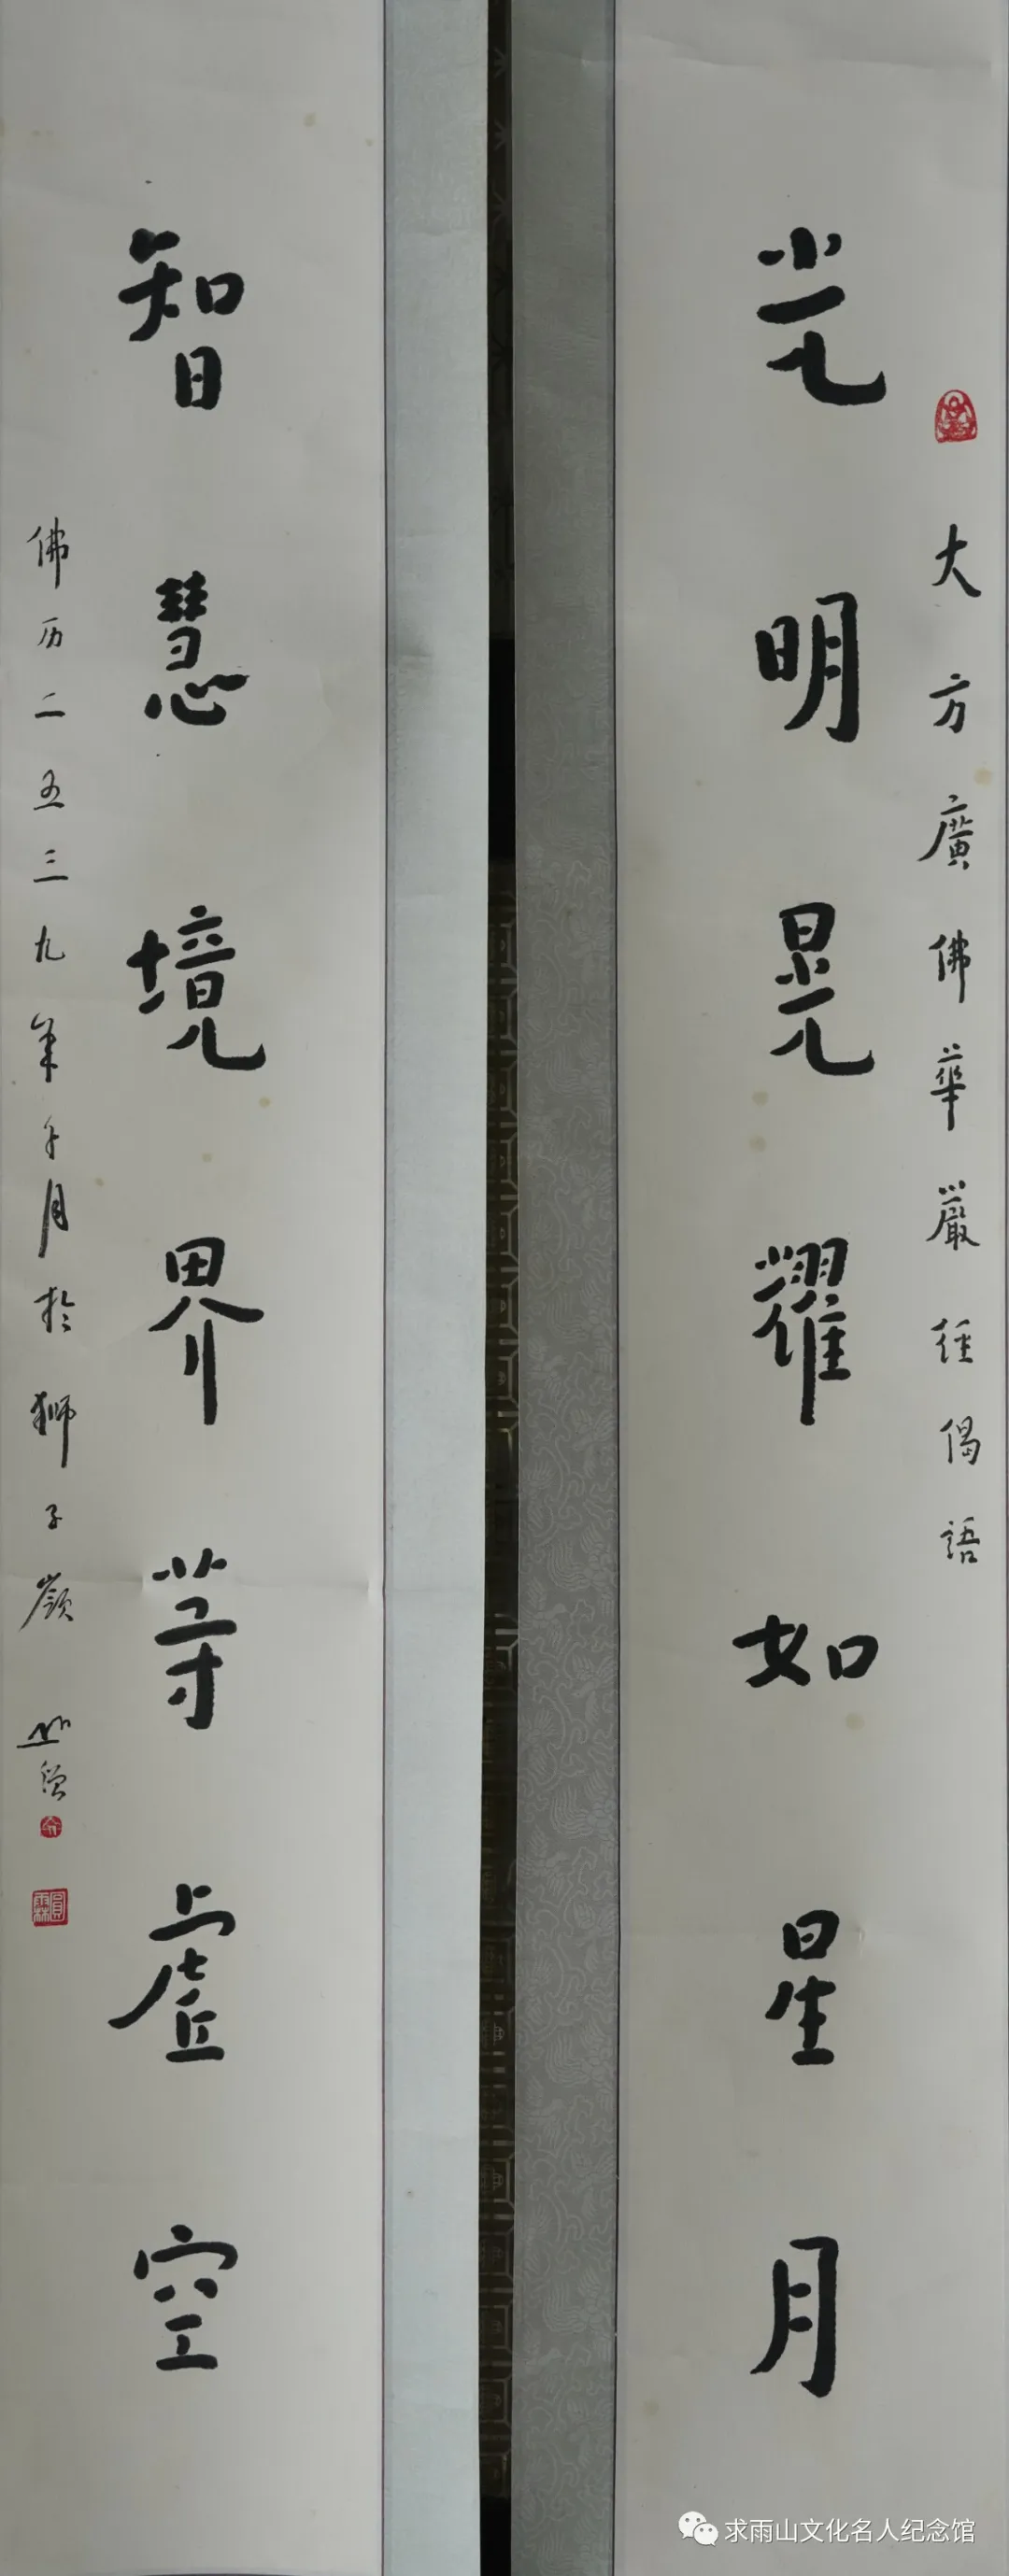 大方廣佛華嚴经偈語
光明晃耀如星月
智慧境界等虛空
佛历二五三九年午月於獅子嶺
圓霖
求雨山文化名人纪念馆